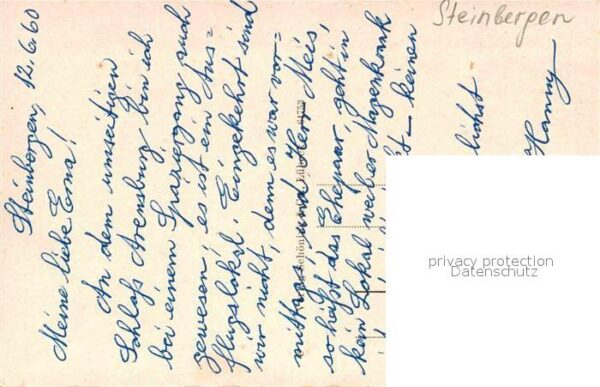 Steinbergen
Steinbergen, 12.6.60
Meine liebe Erna!
An dem umseitigen
Schloß Arensburg bin ich
bei einem Spaziergang auch
gewesen; es ist ein Aus=
flugslokal. Eingekehrt sind
wir nicht, denn es war vor=
mittags, und Herr Meis,
so heißt das Ehepaar, geht in
kein Lokal weil er Magenkrank
keinen
Hanny
privacy protection
Datenschutz